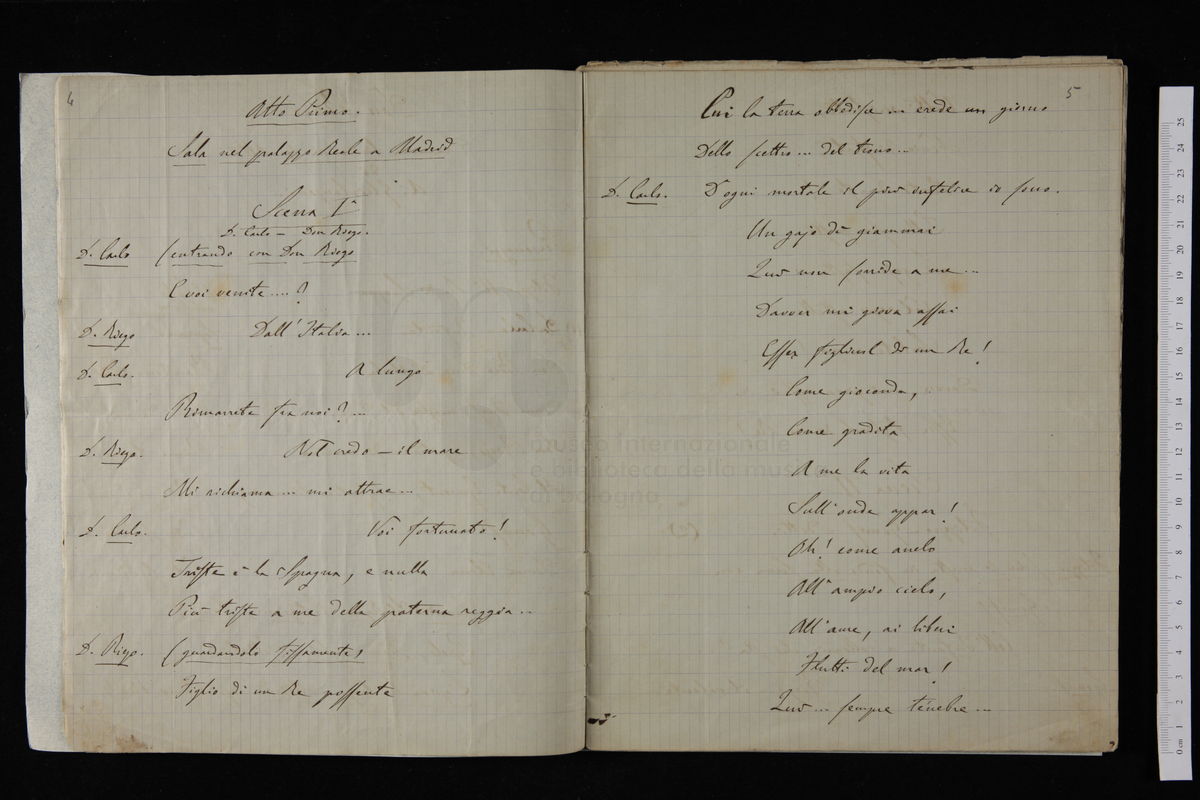 4
Atto Primo.
Sala nel palazzo Reale a Madrid
Scena Iª
D. Carlo — Don Riego.
D. Carlo (entrando con Don Riego
E voi venite....?
D. Riego Dall'Italia...
D. Carlo. A lungo
Rimarrete fra noi?...
D. Riego. Nol credo — il mare
Mi richiama... mi attrae...
D. Carlo. Voi fortunato!
Triste è la Spagna, e nulla
Più triste a me della paterna reggia...
D. Riego. (guardandolo fissamente)
Figlio di un Re possente
5
Cui la terra obbedisce... erede un giorno
Dello scettro... del trono...
D. Carlo. D'ogni mortale il più infelice io sono.
Un gajo dì giammai
Qui non sorride a me...
Davver mi giova assai
Esser figliuol di un Re!
Come gioconda,
Come gradita
A me la vita
Sull'onda appar!
Oh! come anelo
All'ampio cielo,
All'aure, ai liberi
Flutti del mar!
Qui... sempre tenebre...
museo internazionale
e biblioteca della musica
di bologna
0 cm 1 2 3 4 5 6 7 8 9 10 11 12 13 14 15 16 17 18 19 20 21 22 23 24 25